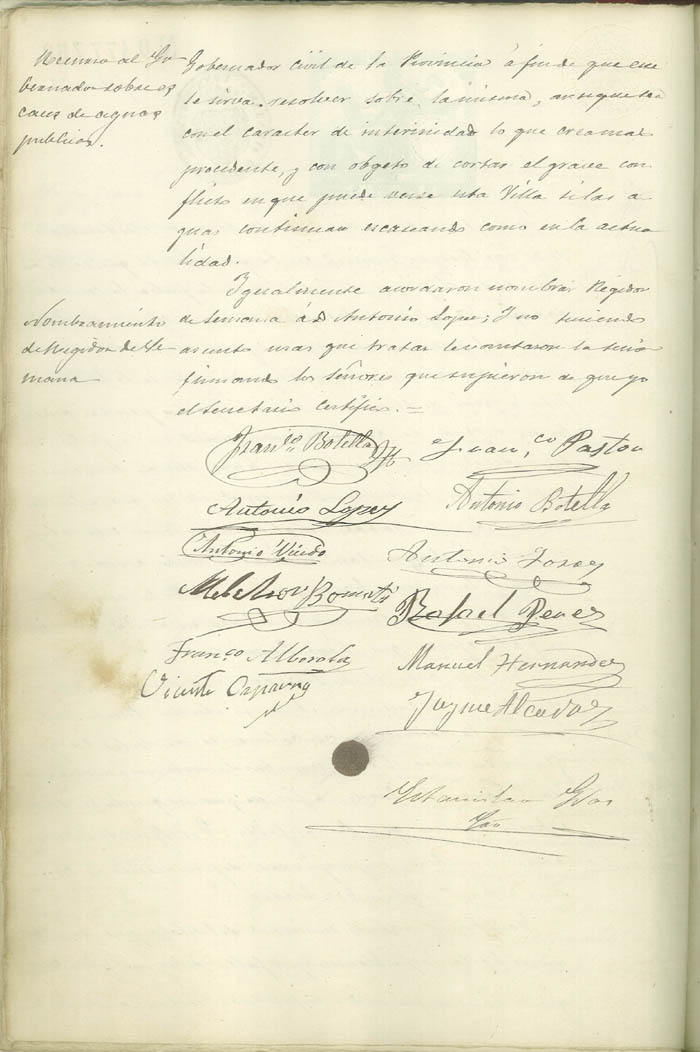 Recurso al Go-
bernador sobre es
cases de aguas
publicas.
Gobernador civil de la Provincia á fin de que este
se sirva resolver sobre la misma, aunque sea
con el caracter de interinidad lo que crea mas
procedente, y con objeto de cortar el grave con
flicto en que puede verse esta Villa si las a
guas continuan escaseando como en la actua
lidad.
Nombramiento
de Regidor de Se
mana
Igualmente acordaron nombrar Regidor
de semana á D Antonio Lopez; Y no teniendo
asunto mas que tratar levantaron la sesion
firmando los señores que supieron de que yo
el Secretario certifico. =
Franco. Botella
Juan, co Pastor
Antonio Lopez
Antonio Botella
Antonio
Antonio
Melchor Bomati
Rafael Perez
Franco Alberola
Manuel Hernandez
Vicente
Jayme Alcaraz
Estanislao